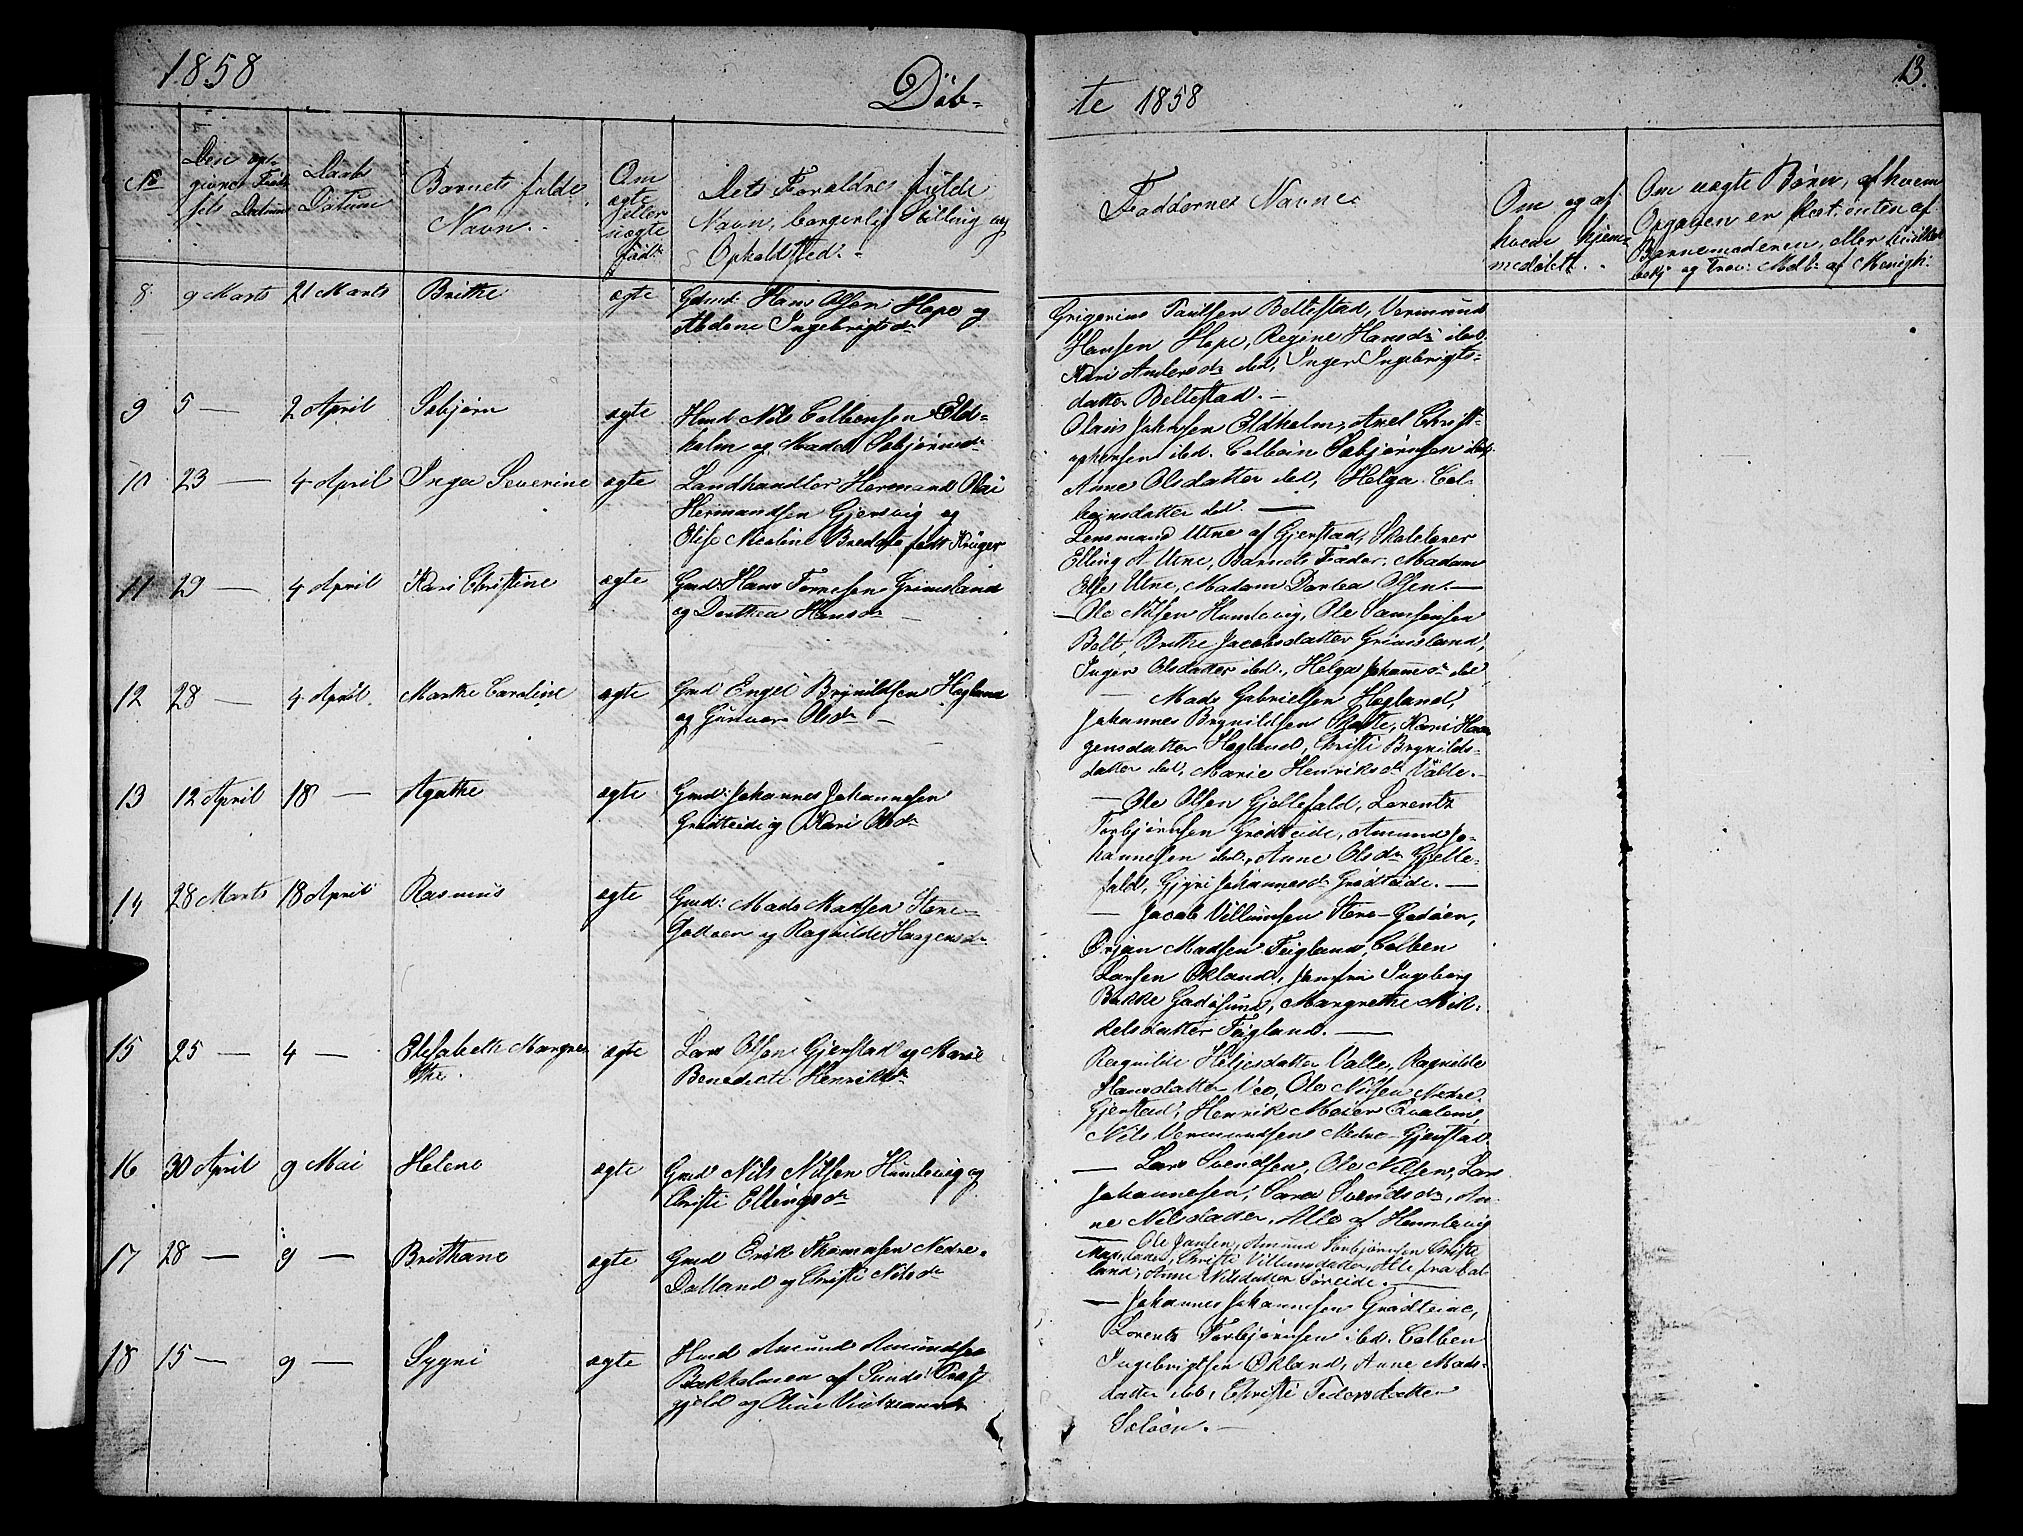 1858
Döb-
te 1858
13.
No
Den op-
givne Föd-
sels Datum
Daabs
Datum
Barnets fulde
Navn.
Om
ægte
eller
uægte
född
Dets Forældres fulde
Navn, borgerlig Stilling og
Opholdsted.
Faddernes Navne
Om og af
hvem hjem-
medöbt.
Om uægte Börn, af hvem
Opgaven er skeet, enten af
Barnemoderen, eller
og Trov: Medl: af Menigh:
8 9 Marts 21 Marts Brithe ægte Gdmd: Hans Olsen Hope og
Abdene Ingebrigtsdr
Grigorius Paulsen Beltestad, Vermund
Hansen Hope, Regine Hansdr ibd.
Kari Andersdr ibd, Inger Ingebrigts-
datter Beltestad.
9 5 — 2 April Sebjörn ægte Hmd Nils Colbensen Eld-
holm og Madel Sebjörnsdr
Olaus Johnsen Eldholm, Axel Christ-
ophersen ibd. Colbein Sebjörnsen ibd.
Anne Olsdatter ibd, Helga Col-
beinsdatter ibd. —
10 23 — 4 April Inga Severine ægte Landhandler Hermand Olai
Hermandsen Gjersvig og
Elise Nicoline Bredahe födt Krüger
Lensmand Utne af Gjerstad, Skolelærer
Elling A Utne, Barnets Fader. Madam
Else Utne, Madam Dorbea Olsen. —
11 29 — 4 April Kari Christine ægte Gmd: Hans Tornesen Grimsland
og Dorthea Hansdr —
— Ole Nilsen Humlevig, Ole Samsonsen
Belt, Brithe Jacobsdatter Grimsland,
Inger Olsdatter ibd., Helga Johannsdr ibd
12 28 — 4 April. Marthe Caroline ægte Gmd Engel Brynildsen Hogland
og Gunvor Olsdr —
— Mads Gabrielsen Hogland,
Johannes Brynildsen Valle, Kari Haa-
gensdatter Hogland, Christi Brynilds-
datter ibd, Marie Henriksdr Valle. —
13 12 April 18 — Agathe ægte Gmd: Johannes Johannesen
Grödteide og Kari Olsdr
— Ole Olsen Gjellefald, Lorentz
Torbjörnsen Grödteide, Amund Jo-
hannesen ibd., Anne Olsdr Gjelle-
fald, Gjyri Johannesdr Grödteide. —
14 28 Marts 18 April Rasmus ægte Gmd: Mads Madsen Store-
Godöen og Ragnilde Haagensdr
— Jacob Villumsen Store-Godöen,
Örjan Madsen Teigland, Colben
Larsen Økland, Jomfru Ingeborg
Bakke Godösund, Margrethe Mik-
kelsdatter Teigland. —
15 25 — 4 — Elisabeth Margre-
the. ægte Lars Olsen Gjerstad og Marie
Benedicte Henriksdr
Ragnilde Helgesdatter Valle, Ragnilde
Hansdatter Vee, Ole Nilsen Nedre
Gjerstad, Henrik Meier
Nils Vermundsen Nedre-Gjerstad.
16 30 April 9 Mai Helene ægte Gmd Nils Nilsen Humlevig og
Christi Ellingsdr
— Lars Svendsen, Ole Nilsen, Lars
Johannesen, Sara Svendsdr, An-
ne Nilsdatter, Alle af Humlevig
17 28 — 9 — Brithane ægte Gmd Erik Thomasen Nedre-
Dalland og Christi Nilsdr
— Ole Jansen, Amund Torbjörnsen Christi
Madsdatter, Christi Villumsdatter, Alle fra Dal-
land, Anne Nilsdatter Söreide. —
18 15 — 9 — Sygni ægte Hmd Amund Amundsen
Bakholmen af Sunds Præst
gjeld og Oline
— Johannes Johannesen Grödteide,
Lorentz Torbjörnsen ibd. Colben
Ingebrigtsen Økland, Anne Mads-
datter ibd, Christi Pedersdatter
Selöen. —